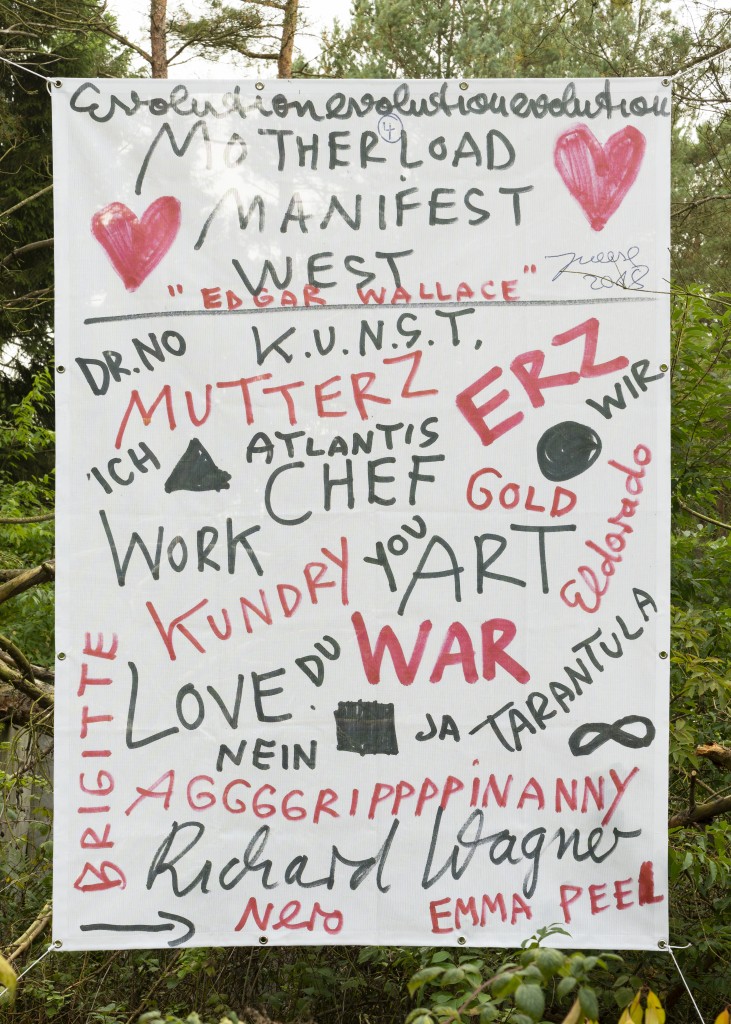 Evolutionevolutionevolution
4
MOTHERLOAD
MANIFEST
WEST
Meese
2018
"EDGAR WALLACE"
DR.NO
K.U.N.S.T.
MUTTERZ
ERZ
WIR
ICH
ATLANTIS
CHEF
GOLD
Eldorado
WORK
YOU
ART
KUNDRY
WAR
LOVE
DU
NEIN
JA
TARANTULA
BRIGITTE
AGGGGRIPPPPINANNY
Richard Wagner
Nero
EMMA PEEL